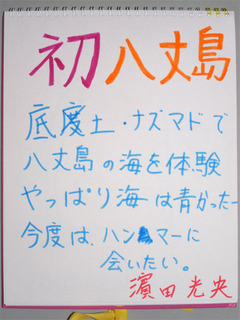 初八丈島
底土・ナズマドで
八丈島の海を体験
やっぱり海は青かったー
今度は、ハンマーに
会いたい。
濱田光央